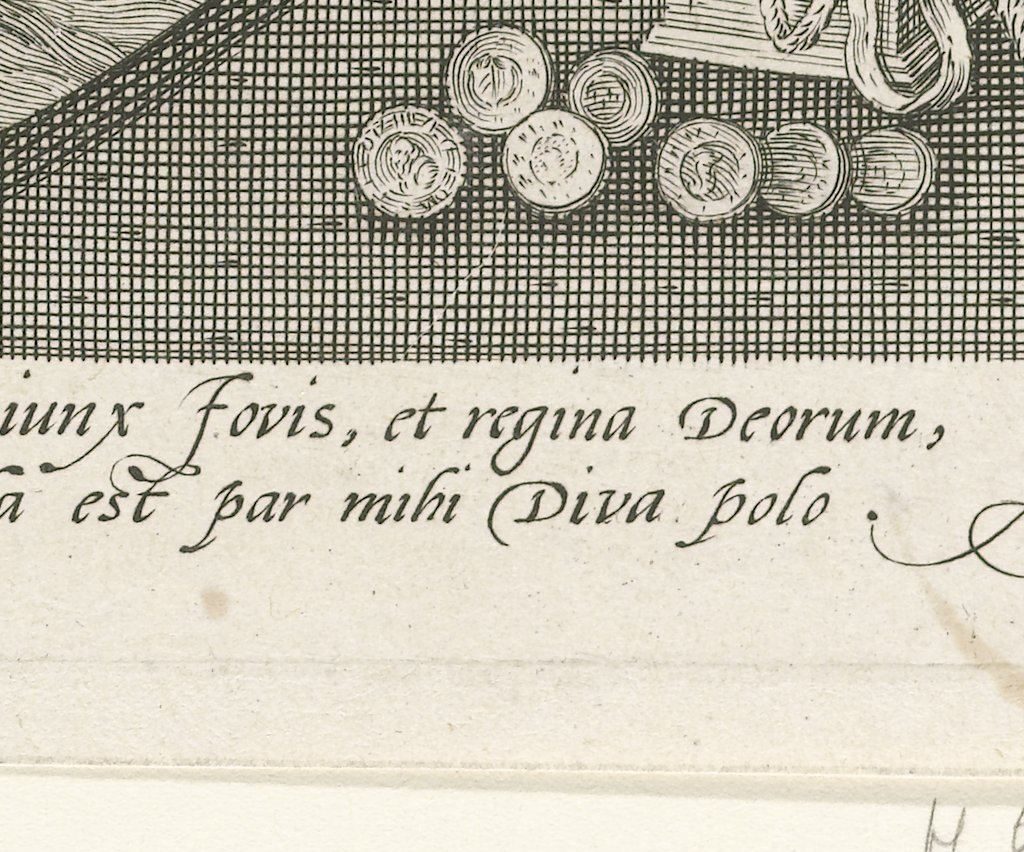 iunx Jovis, et regina Deorum,
a est par mihi Diva polo.